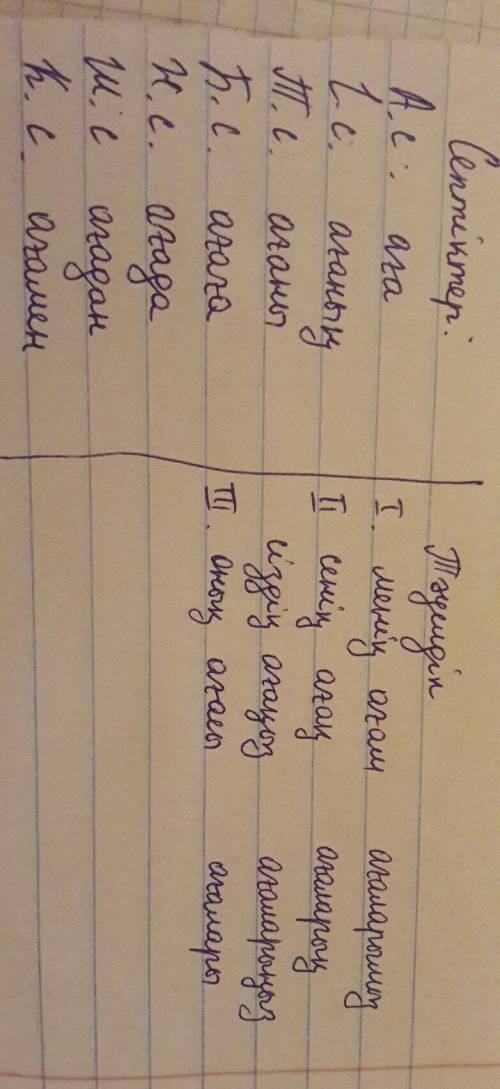 Септіктері:
А.с. аға
І.с. ағаның
Т.с. ағаны
Б.с. ағаға
Ж.с. ағада
Ш.с ағадан
К.с. ағамен
Тәуелдік
I. менің ағам ағаларымыз
II сенің ағаң ағаларың
сіздің ағаңыз ағаларыңыз
III. оның ағасы ағалары